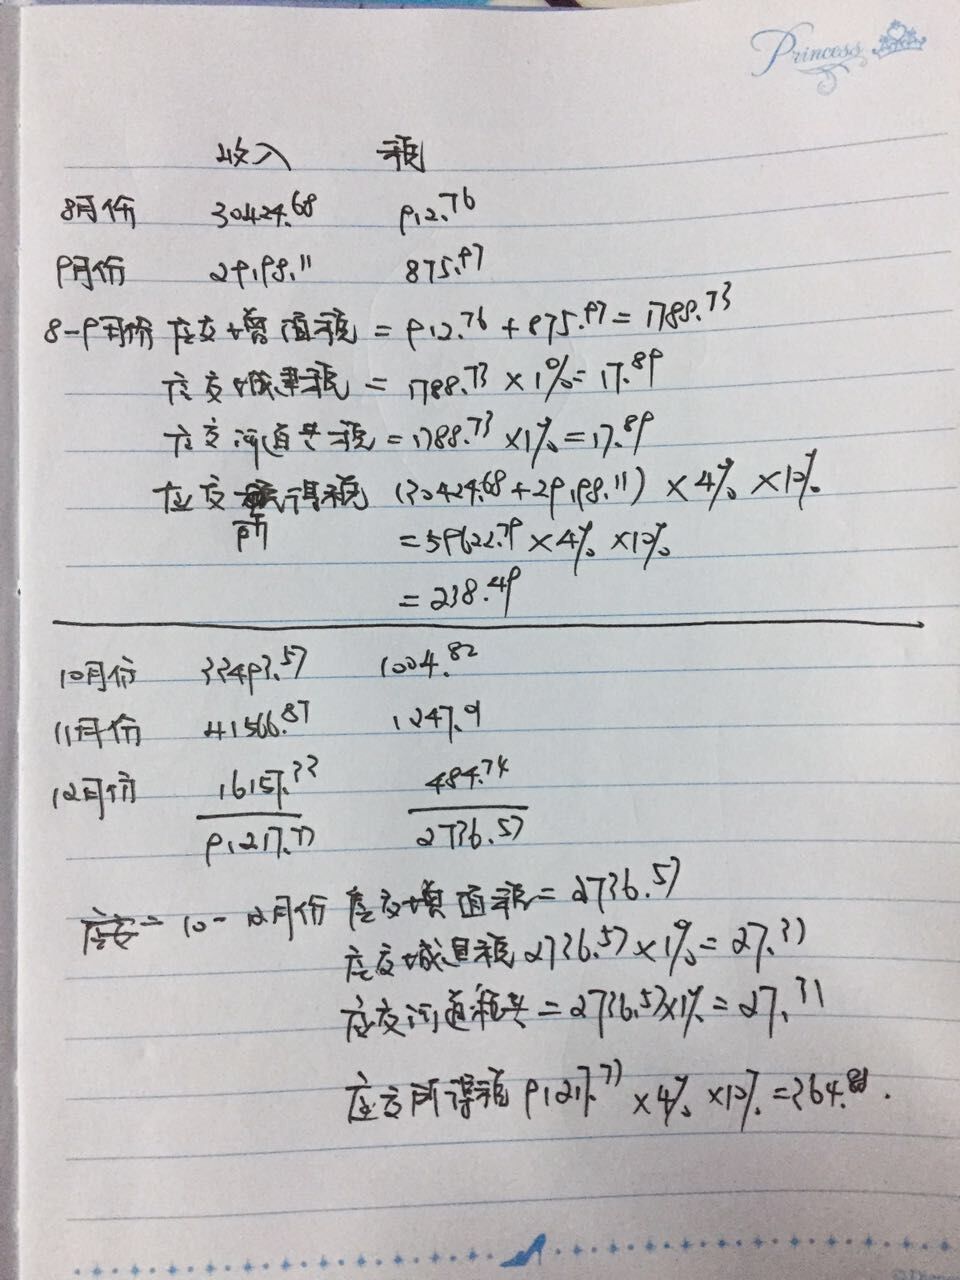 Princess
收入 税
8月份 30424.68 912.76
9月份 29198.11 875.97
8-9月份 应交增值税 = 912.76 + 875.97 = 1788.73
应交城建税 = 1788.73 × 1% = 17.89
应交河道费税 = 1788.73 × 1% = 17.89
应交所得税 (30424.68 + 29198.11) × 4% × 10%
= 59622.79 × 4% × 10%
= 238.49
10月份 33493.57 1004.82
11月份 41566.87 1247.01
12月份 16157.33 484.74
91217.77 2736.57
应交 = 10-12月份 应交增值税 = 2736.57
应交城建税 2736.57 × 1% = 27.37
应交河道税费 = 2736.57 × 1% = 27.37
应交所得税 91217.77 × 4% × 10% = 364.